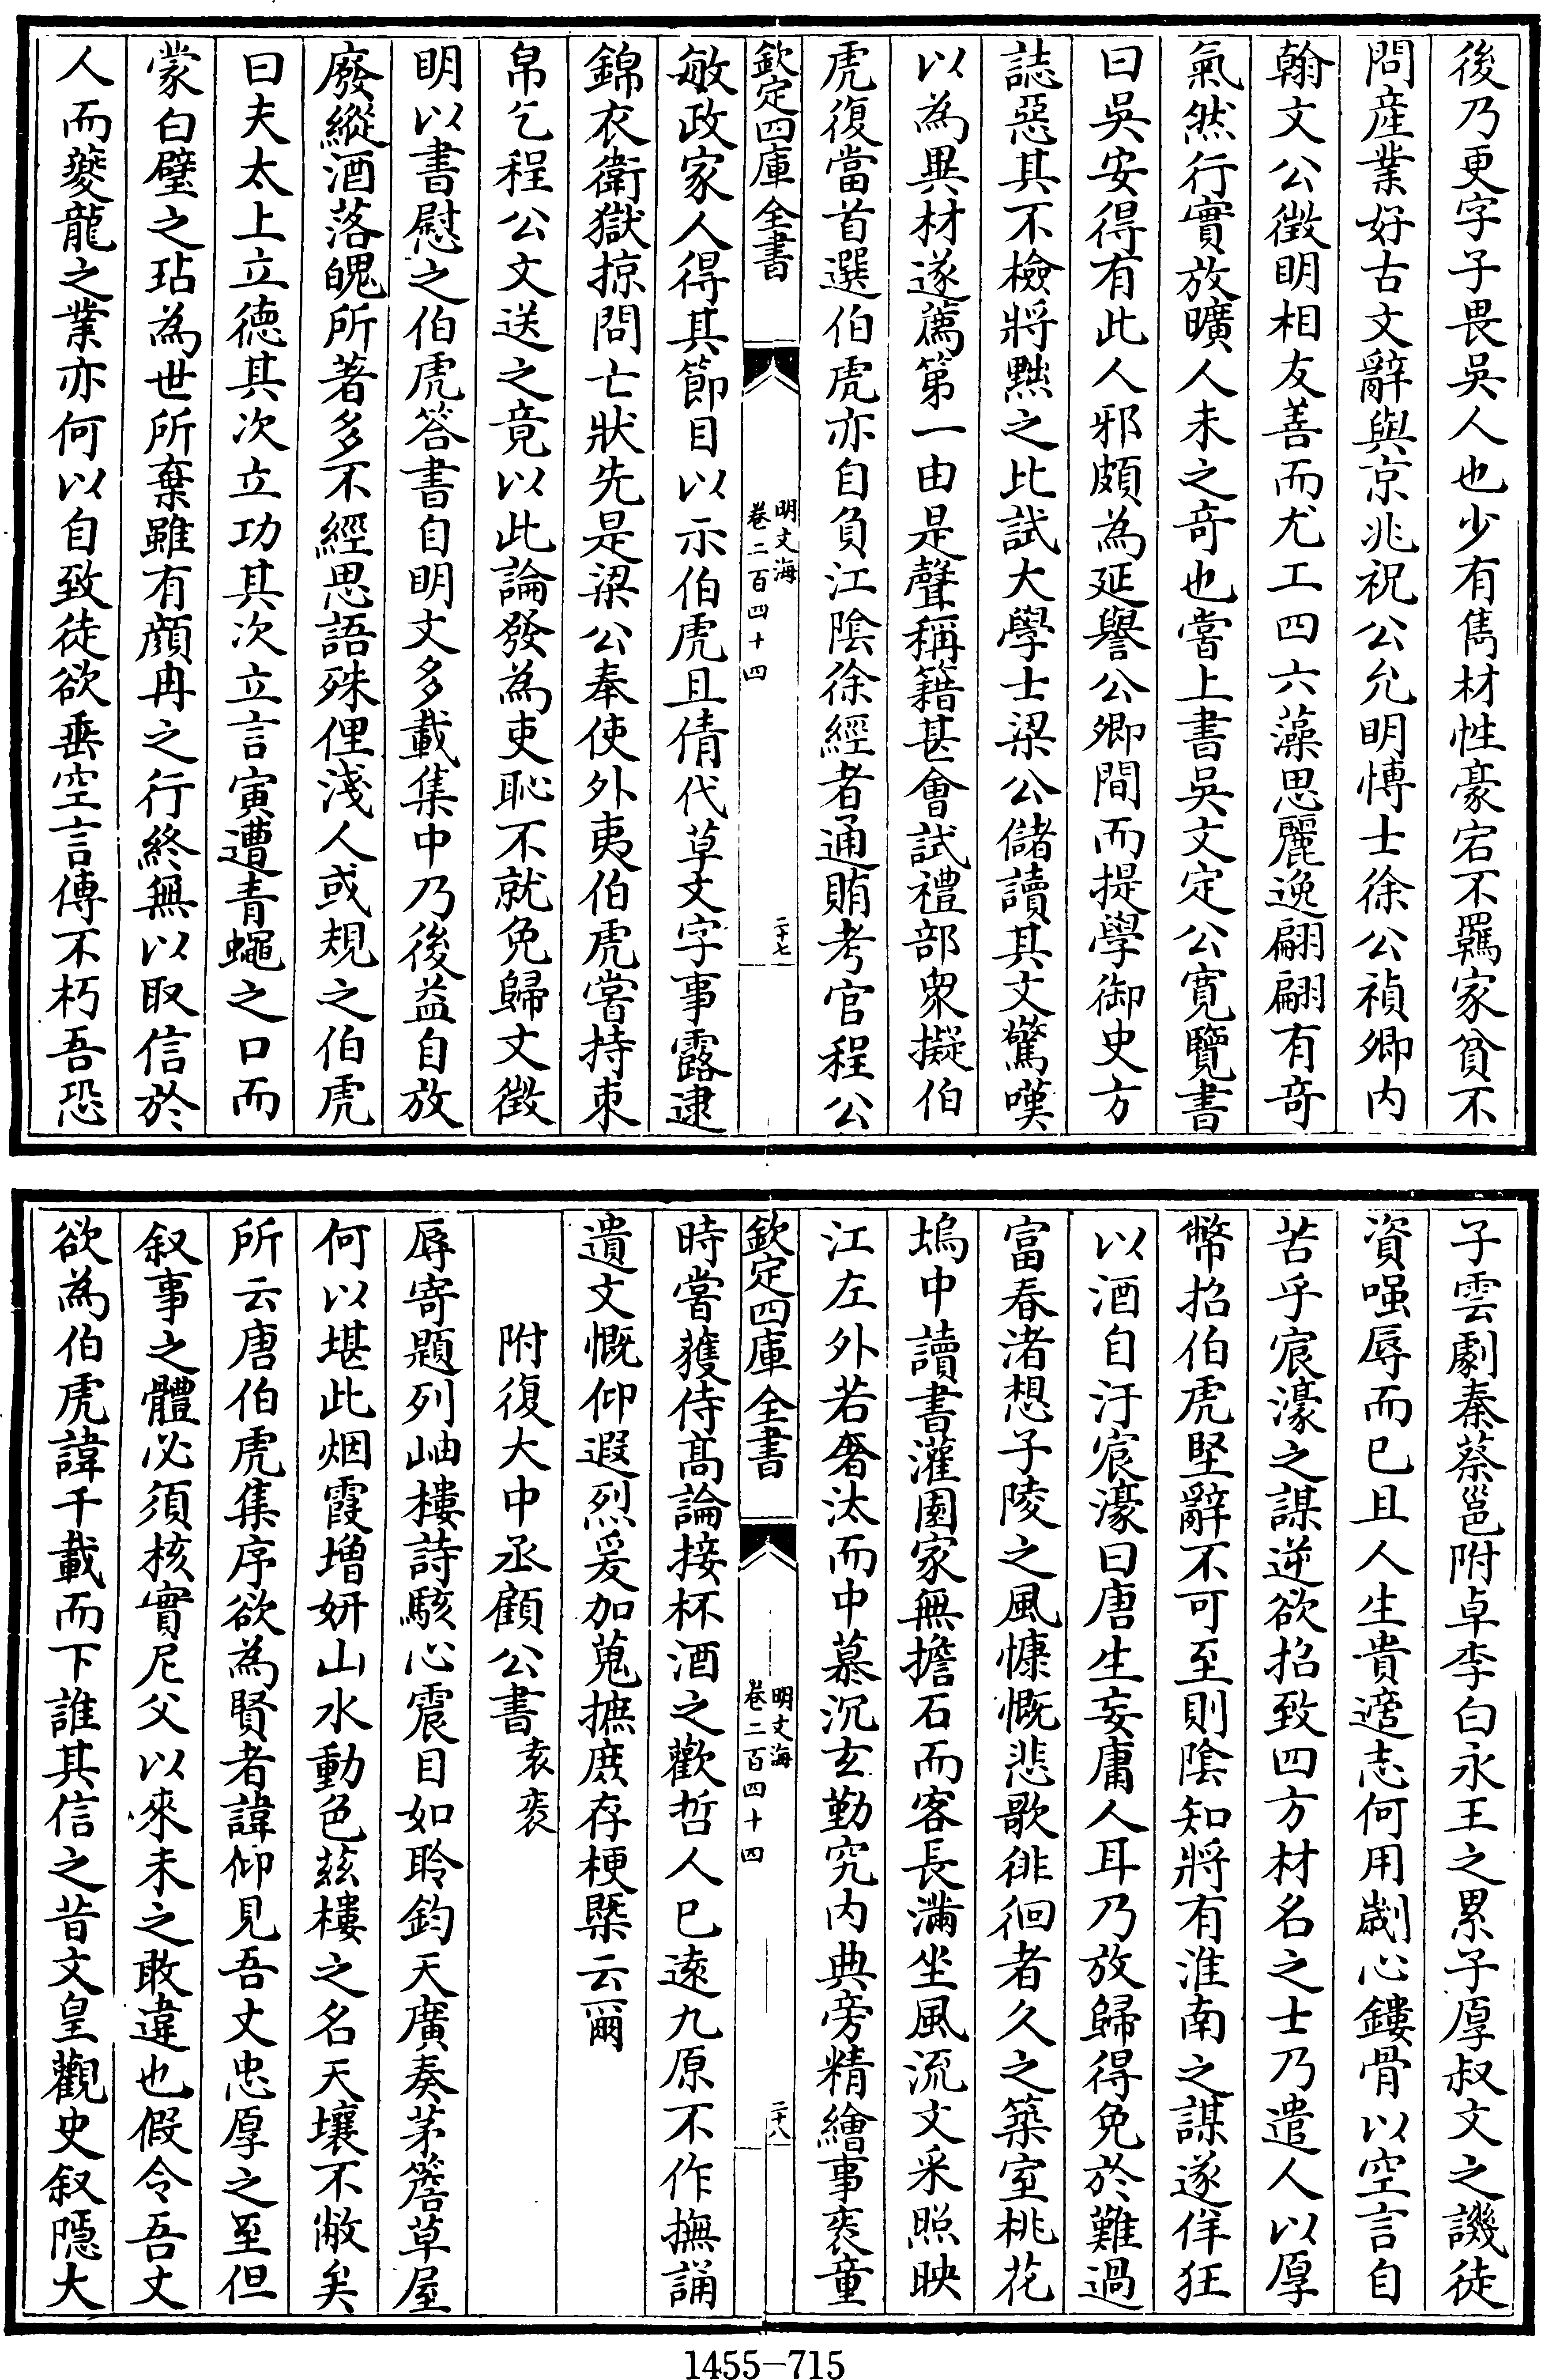 後乃更字子畏吳人也少有雋材性豪宕不羈家貧不
問産業好古文辭與京兆祝公允明博士徐公禎卿內
翰文公徵明相友善而尤工四六藻思麗逸翩翩有奇
氣然行實放曠人未之奇也嘗上書吳文定公寛覽書
曰吳安得有此人邪頗為延譽公卿間而提學御史方
誌惡其不檢將黜之比試大學士梁公儲讀其文驚嘆
以為異材遂薦第一由是聲稱籍甚會試禮部衆擬伯
虎復當首選伯虎亦自負江陰徐經者通賄考官程公
欽定四庫全書
明文海
卷二百四十四
二十七
敏政家人得其節目以示伯虎且倩代草文字事露逮
錦衣衛獄掠問亡狀先是梁公奉使外夷伯虎嘗持束
帛乞程公文送之竟以此論發為吏恥不就免歸文徵
明以書慰之伯虎答書自明丈多載集中乃後益自放
廢縱酒落魄所著多不經思語殊俚淺人或規之伯虎
曰夫太上立徳其次立功其次立言寅遭青蠅之口而
蒙白璧之玷為世所棄雖有顔冉之行終無以取信於
人而夔龍之業亦何以自致徒欲垂空言傳不朽吾恐
子雲劇秦蔡邕附卓李白永王之累子厚叔文之譏徒
資嗤辱而已且人生貴適志何用劌心鏤骨以空言自
苦乎宸濠之謀逆欲招致四方材名之士乃遣人以厚
幣招伯虎堅辭不可至則陰知將有淮南之謀遂佯狂
以酒自汙宸濠曰唐生妄庸人耳乃放歸得免於難過
富春渚想子陵之風慷慨悲歌徘徊者久之築室桃花
塢中讀書灌園家無擔石而客長滿坐風流文采照映
江左外若奢汰而中慕沉玄勤究内典旁精繪事袠童
欽定四庫全書
明文海
卷二百四十四
二十八
時嘗獲侍髙論接杯酒之歡哲人已逺九原不作撫誦
遺文慨仰遐烈爰加蒐摭庶存梗槩云爾
附復大中丞顧公書袁袠
辱寄題列岫樓詩駭心震目如聆鈞天廣奏茅簷草屋
何以堪此烟霞增妍山水動色茲樓之名天壤不敝矣
所云唐伯虎集序欲為賢者諱仰見吾丈忠厚之至但
叙事之體必須核實尼父以來未之敢違也假令吾丈
欲為伯虎諱千載而下誰其信之昔文皇觀史叙隱大
1455-715